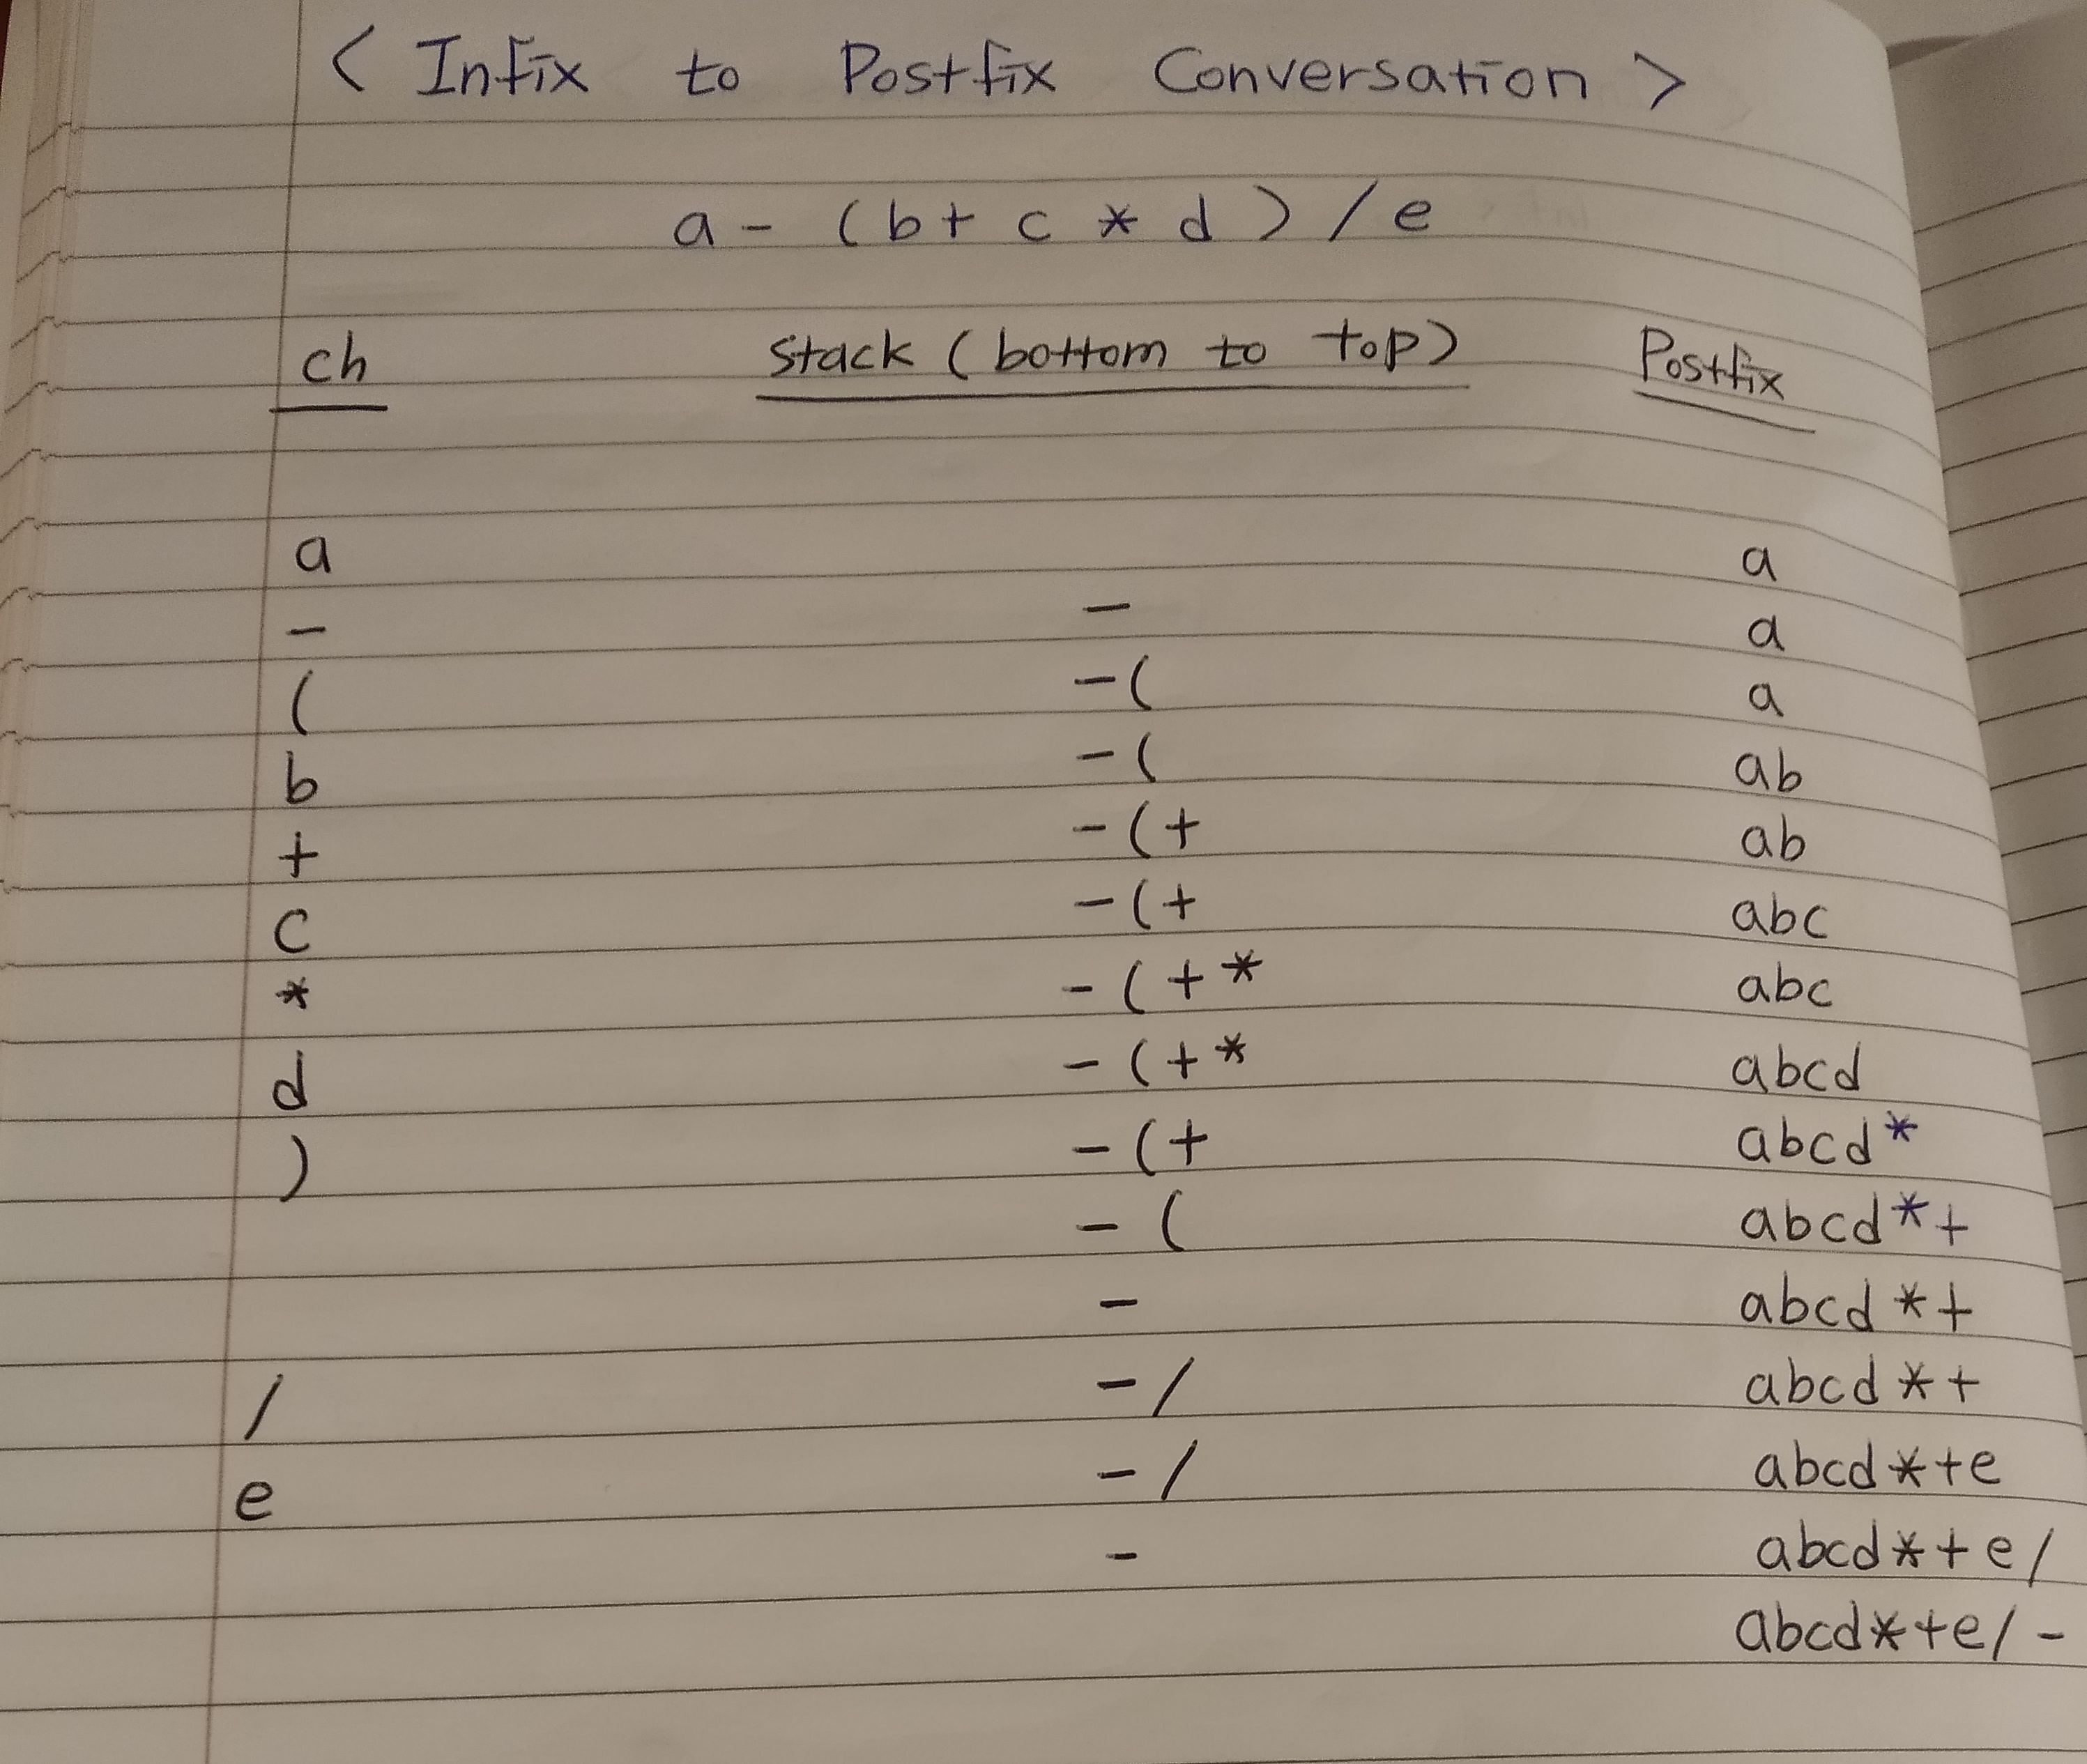 < Infix to Postfix Conversation >
a - (b + c * d) / e
ch stack (bottom to top) Postfix
a a
- - a
( -( a
b -( ab
+ -(+ ab
c -(+ abc
* -(+* abc
d -(+* abcd
) -(+ abcd*
-( abcd*+
- abcd*+
/ -/ abcd*+
e -/ abcd*+e
- abcd*+e/
abcd*+e/-